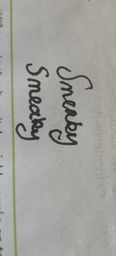 Sneaky
Sneaky